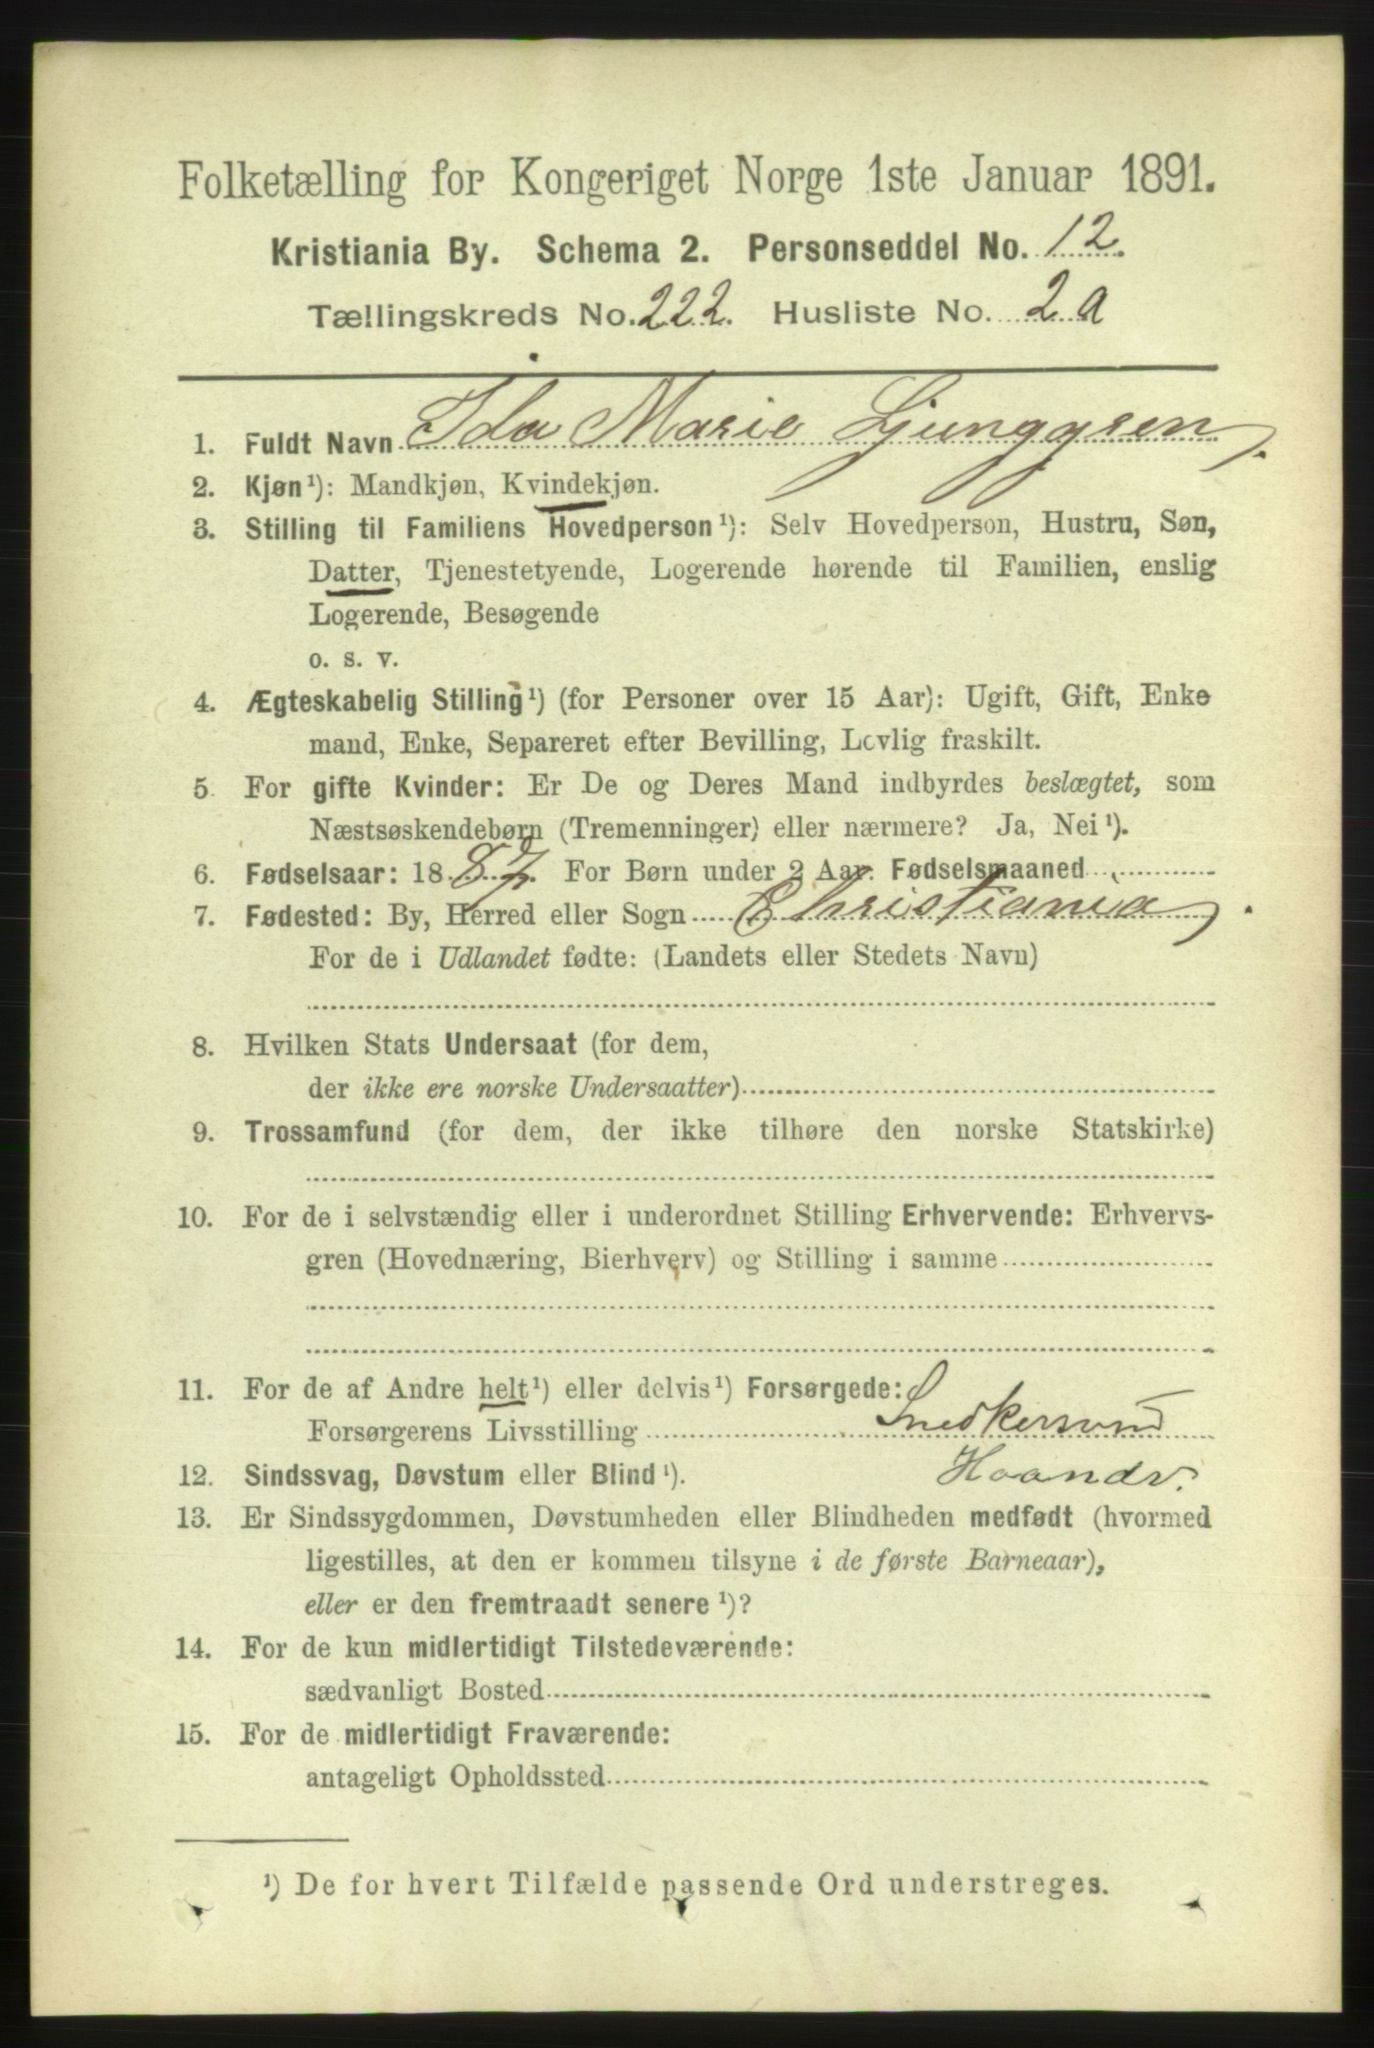 Folketælling for Kongeriget Norge 1ste Januar 1891.
Kristiania By. Schema 2. Personseddel No. 12.
Tællingskreds No. 222. Husliste No. 2 a
1. Fuldt Navn Ida Marie Ljunggren.
2. Kjøn¹): Mandkjøn, Kvindekjøn.
3. Stilling til Familiens Hovedperson¹): Selv Hovedperson, Hustru, Søn,
Datter, Tjenestetyende, Logerende hørende til Familien, enslig
Logerende, Besøgende
o. s. v.
4. Ægteskabelig Stilling¹) (for Personer over 15 Aar): Ugift, Gift, Enke
mand, Enke, Separeret efter Bevilling, Lovlig fraskilt.
5. For gifte Kvinder: Er De og Deres Mand indbyrdes beslægtet, som
Næstsøskendebørn (Tremenninger) eller nærmere? Ja, Nei¹).
6. Fødselsaar: 1887. For Børn under 2 Aar. Fødselsmaaned
7. Fødested: By, Herred eller Sogn Christiania.
For de i Udlandet fødte: (Landets eller Stedets Navn)
8. Hvilken Stats Undersaat (for dem,
der ikke ere norske Undersaatter)
9. Trossamfund (for dem, der ikke tilhøre den norske Statskirke)
10. For de i selvstændig eller i underordnet Stilling Erhvervende: Erhvervs-
gren (Hovednæring, Bierhverv) og Stilling i samme
11. For de af Andre helt¹) eller delvis¹) Forsørgede:
Forsørgerens Livsstilling Snedkersvend
Haandv.
12. Sindssvag, Døvstum eller Blind¹).
13. Er Sindssygdommen, Døvstumheden eller Blindheden medfødt (hvormed
ligestilles, at den er kommen tilsyne i de første Barneaar),
eller er den fremtraadt senere¹)?
14. For de kun midlertidigt Tilstedeværende:
sædvanligt Bosted
15. For de midlertidigt Fraværende:
antageligt Opholdssted
¹) De for hvert Tilfælde passende Ord understreges.